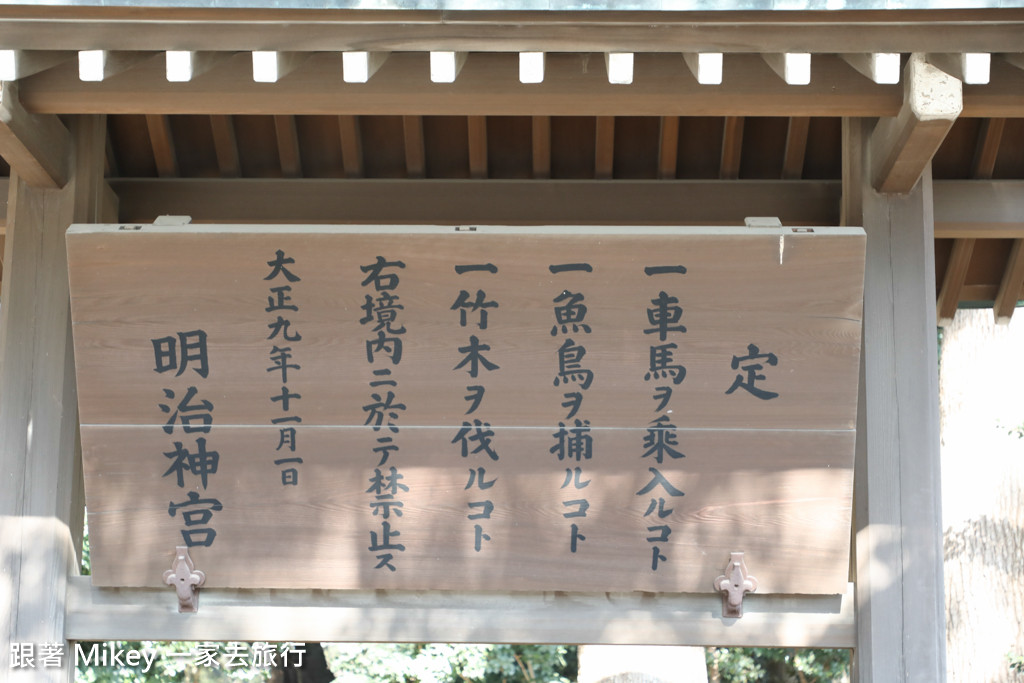 定
一車馬ヲ乗入ルコト
一魚鳥ヲ捕ルコト
一竹木ヲ伐ルコト
右境内ニ於テ禁止ス
大正九年十一月一日
明治神宮
跟著 Mikey 一家去旅行